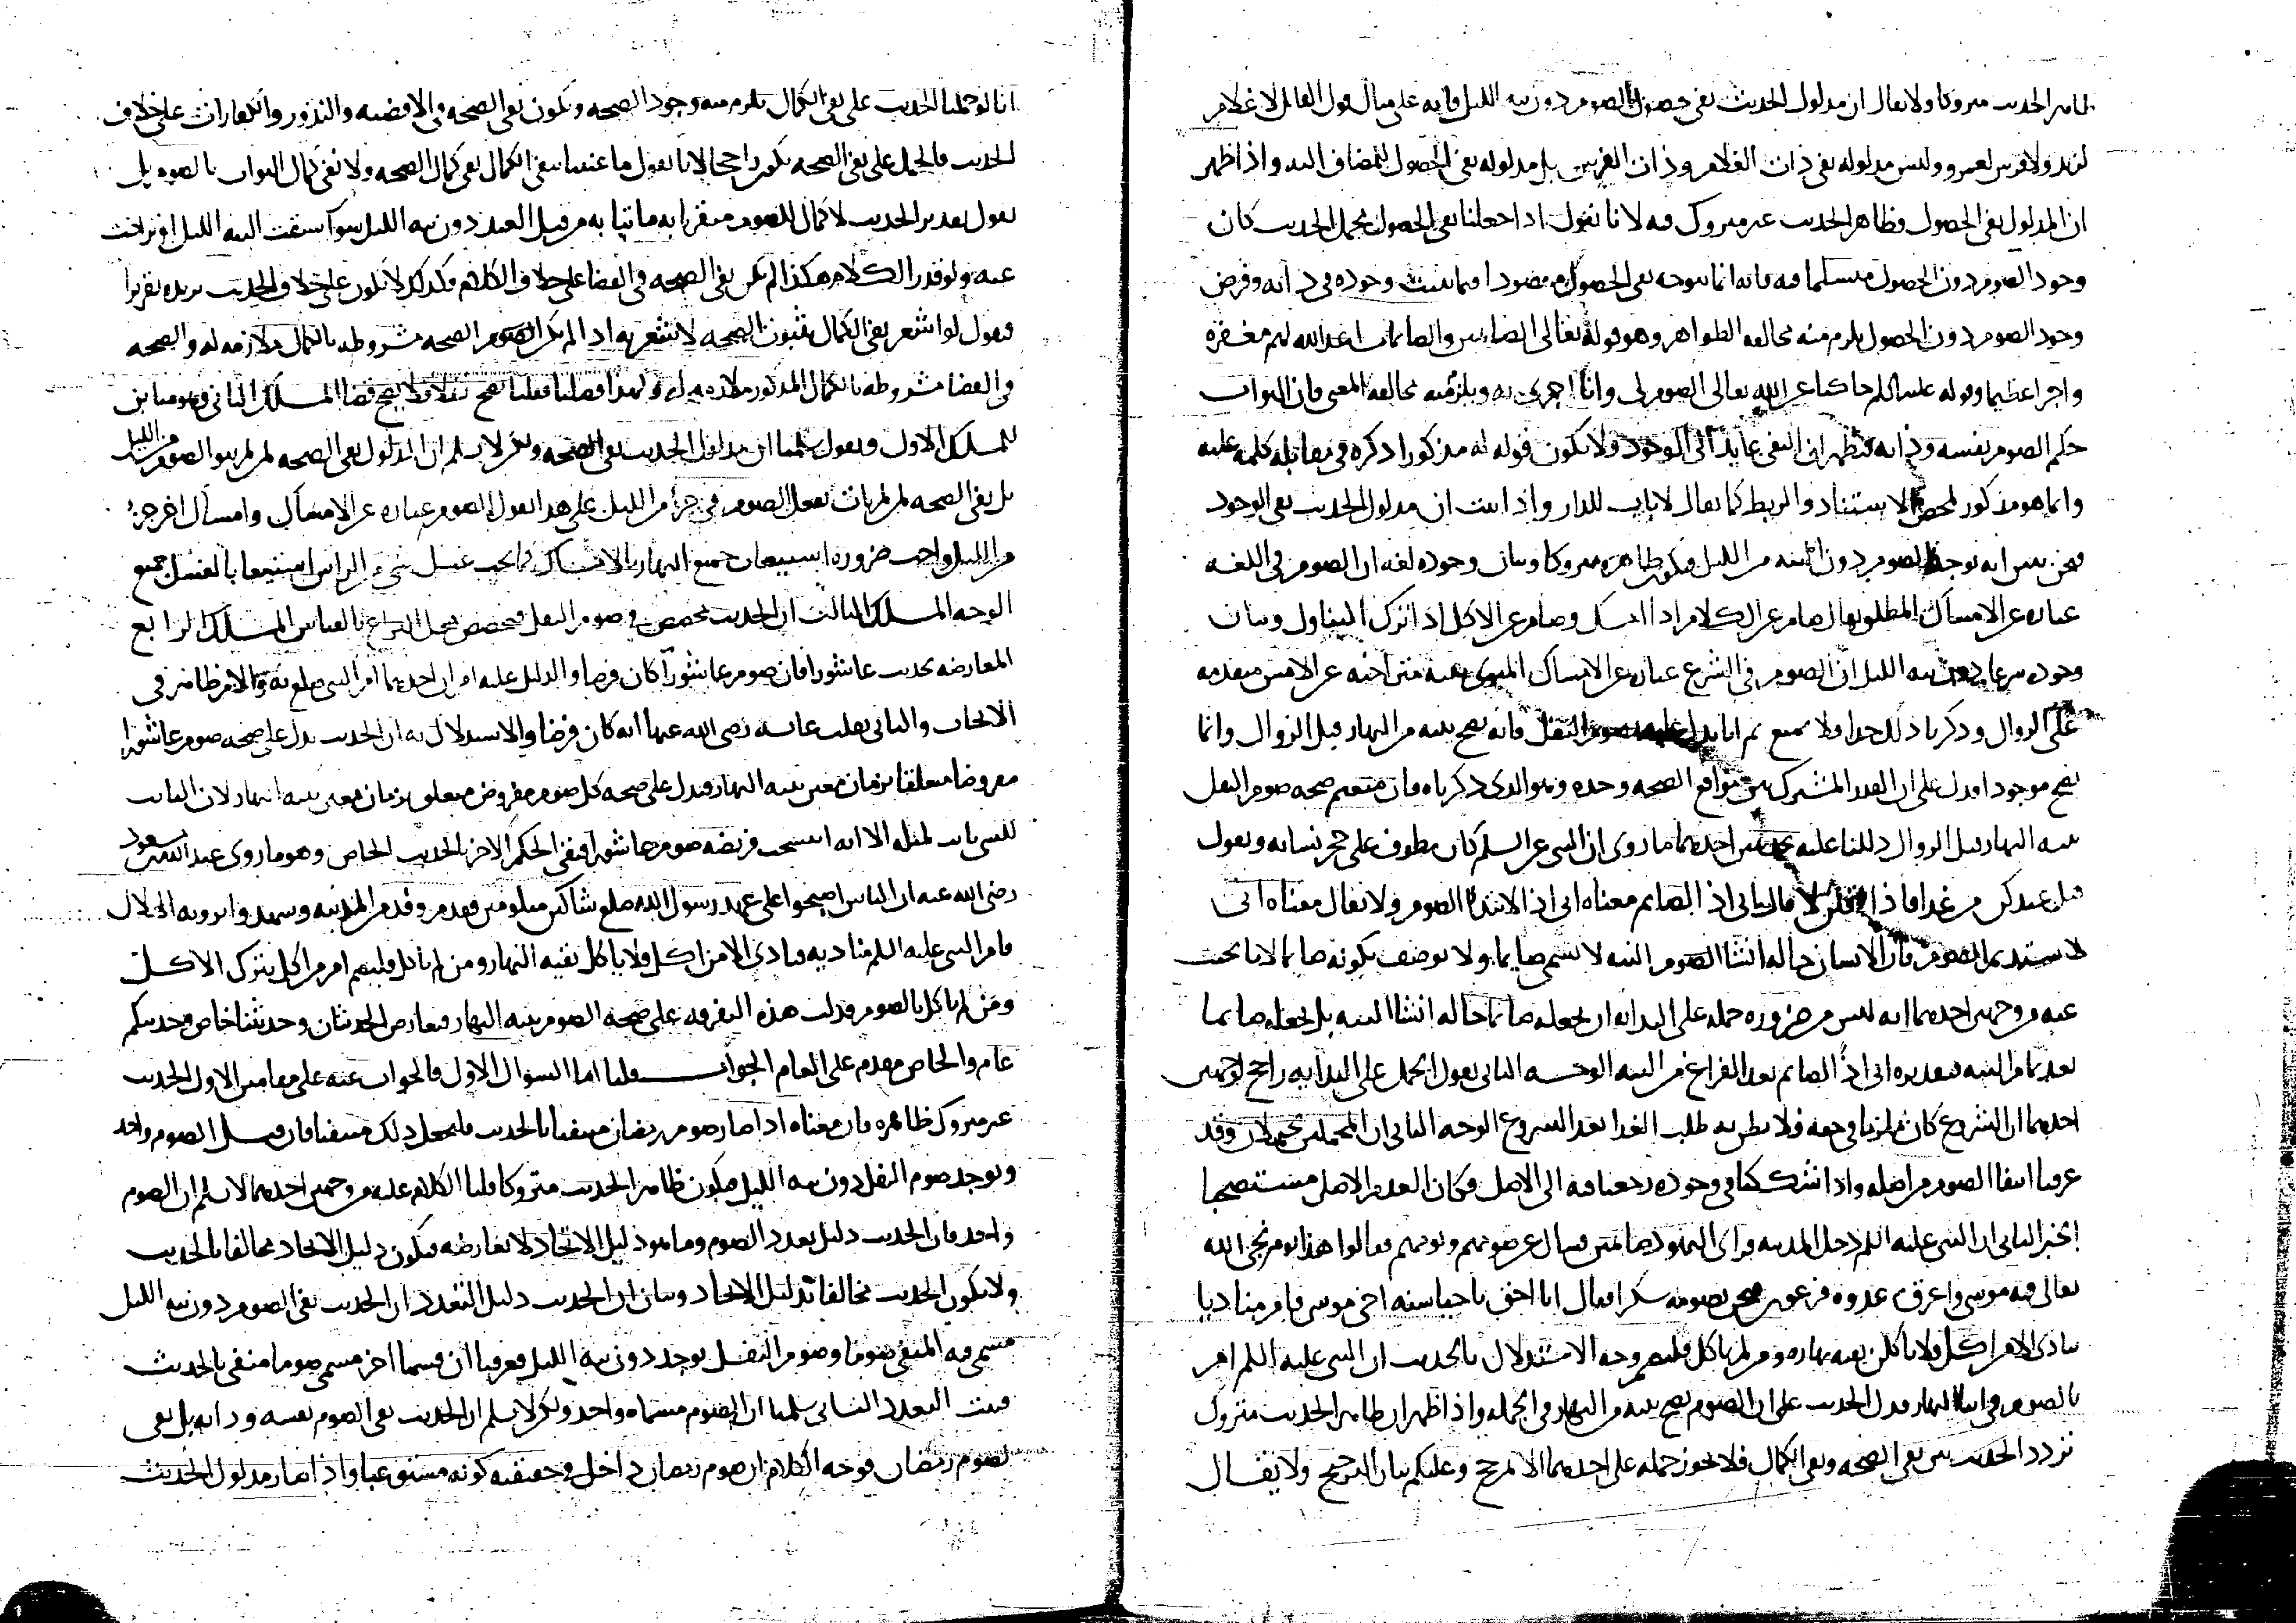 ظاهر الحديث متروكا ولا يقال ان مدلول الحديث نفي حصول الصوم دون نيه الليل فانه على مثال قول القائل لا غلام
لزيد ولا فرس لعمرو وليس مدلوله نفي ذات الغلام وذات الفرس بل مدلوله نفي الحصول للمضاف اليه واذا ظهر
ان المدلول نفي الحصول فظاهر الحديث غير متروك فيه لانا نقول اذا جعلنا نفي الحصول محمل الحديث كان
وجود الصوم دون الحصول مسلما فيه فانه انما يتوجه نفي الحصول مقصودا فيما يثبت وجوده في ذاته وفرض
وجود الصوم دون الحصول يلزم منه مخالفه الظواهر وهو قوله تعالى الصائمين والصائمات اعد الله لهم مغفره
واجرا عظيما وقوله عليه السلم حاكيا عن الله تعالى الصوم لي وانا اجزي به ويلزم منه مخالفه المعنى فان الثواب
حكم الصوم بنفسه وذاته فتظهر ان النفي عايد الى الوجود ولا يكون قوله له مذكورا ذكره في مقابله كلمه عليه
وانما هو مذكور لمحض الاستناد والربط كما يقال لا باب للدار واذا ثبت ان مدلول الحديث نفي الوجود
فنحن نبين انه يوجد الصوم دون النيه من الليل فيكون ظاهره متروكا وبيان وجوده لغه ان الصوم في اللغه
عباره عن الامساك المطلق يقال صام عن الكلام اذا امسك وصام عن الاكل اذا ترك التناول وبيان
وجوده شرعا بدون نيه الليل ان الصوم في الشرع عباره عن الامساك المنوي بنيه متراخيه عن الامس متقدمه
على الزوال وذكر باد لذا حدا ولا يمنع ثم انا يدل عليه صوم النفل فانه يصح بنيه من النهار قبل الزوال وانما
يصح موجودا فدل على ان القدر المشترك بين مواقع الصحه وحده وهو الذي ذكرناه فان منعتم صحه صوم النفل
بنيه النهار قبل الزوال دللنا عليه بحديثين احدهما ما روى ان النبي عليه السلم كان يطوف على حجر نسائه ويقول
هل عندكن من غدا فاذا قلن لا قال اني اذا لصائم معناه اني اذا لابتدى الصوم ولا يقال معناه اني
لا ستديم الصوم فان الانسان حاله انشا الصوم النيه لا يسمى صايما ولا يوصف بكونه صايما لانا نجيب
عنه من وجهين احدهما انه ليس من ضروره حمله على البدايه ان يجعله صائما حاله انشا النيه بل يجعله صايما
بعد تمام النيه فتقديره اني اذا لصائم بعد الفراغ من النيه الوجه الثاني نقول الحمل على البدايه راجح لوجهين
احدهما ان الشروع كان ملزما في حقه فلا يظن به طلب الغدا بعد الشروع الوجه الثاني ان المحملين محتملان وقد
عرفنا انتفا الصوم من اصله واذا شككنا في وجوده رجعنا فيه الى الاصل فكان العدم الاصلي مستصحبا
الخبر الثاني ان النبي عليه السلم دخل المدينه فراى اليهود صائمين فسال عن صومهم ويومهم فقالوا هذا يوم نجى الله
تعالى فيه موسى واغرق عدوه فرعون فنحن نصومه شكرا فقال انا احق باحيا سنه اخي موسى فامر مناديا
ينادى الا من اكل فلا ياكلن بقيه نهاره ومن لم ياكل فليصم وجه الاستدلال بالحديث ان النبي عليه السلم امر
بالصوم في اثنا النهار فدل الحديث على ان الصوم يصح بنيه من النهار في الجمله واذا ظهر ان ظاهر الحديث متروك
تردد الحديث بين نفي الصحه ونفي الكمال فلا يجوز حمله على احدهما الا بمرجح وعليكم بيان الترجيح ولا يقال
انا لو حملنا الحديث على نفي الكمال يلزم منه وجود الصحه ويكون نفي الصحه في الاقضيه والنذور والكفارات على خلاف
الحديث فالحمل على نفي الصحه يكون راجحا لانا نقول ما عنينا بنفي الكمال نفي كمال الصحه ولا نفي كمال الثواب بالصوم بل
نقول تقدير الحديث لا كمال للصوم متقربا به ماتيا به من قبل العبد دون نيه الليل سوآ سبقت النيه الليل او تراخت
عنه ولو قدر الكلام هكذا لم يكن نفي الصحه في القضا على خلاف الكلام وكذلك لا يكون على خلاف الحديث نزيده تقريرا
ونقول لو اشعر نفي الكمال بثبوت الصحه لا يشعر به اذا لم يكن الصوم الصحه مشروطه بالكمال ملازمه له والصحه
في القضا مشروطه بالكمال المذكور ملازمه له ولهذا فصلنا فقلنا يصح نفلا ولا يصح قضا المسلك الثاني وهو مباين
للمسلك الاول ونقول سلمنا ان مدلول الحديث نفي الصحه ولكن لا نسلم ان المدلول نفي الصحه لمن لم ينو الصوم من الليل
بل نفي الصحه لمن لم يات بفعل الصوم في جزا من الليل على هذا نقول الصوم عباره عن الامساك وامساك اخر جزء
من الليل واجب ضروره استيعاب جميع النهار بالامساك كما يجب غسل شيء من الراس استيعابا لغسل جميع
الوجه المسلك الثالث ان الحديث مخصص في صوم النفل فيخصص محل النزاع بالقياس المسلك الرابع
المعارضه بحديث عاشورا فان صوم عاشورآ كان فرضا والدليل عليه امران احدهما امر النبي صلعم به والامر ظاهر في
الايجاب والثاني نقلت عائشه رضى الله عنها انه كان فرضا والاستدلال به ان الحديث يدل على صحه صوم عاشورا
مفروضا متعلقا بزمان معين بنيه النهار فيدل على صحه كل صوم مفروض متعلق بزمان معين بنيه النهار لان الثابت
للشي ثابت لمثله الا انه انتسخت فريضه صوم عاشورا فبقي الحكم الاخر بالحديث الخاص وهو ما روى عبد الله بن مسعود
رضى الله عنه ان الناس اصبحوا على عهد رسول الله صلعم شاكين متلومين فقدم وفد من المدينه وشهدوا برويه الهلال
فامر النبي عليه السلم مناديه فنادى الا من اكل فلا ياكل بقيه النهار ومن لم ياكل فليصم امر من اكل بترك الاكل
ومن لم ياكل بالصوم فدلت هذه التفرقه على صحه الصوم بنيه النهار فتعارض الحديثان وحديثنا خاص وحديثكم
عام والخاص مقدم على العام الجواب قلنا اما السوال الاول فالجواب عنه على مقامين الاول الحديث
غير متروك ظاهره فان معناه اذا صار صوم رمضان منفيا بالحديث فليجعل ذلك منفيا فان قيل الصوم واحد
ويوجد صوم النفل دون نيه الليل فيكون ظاهر الحديث متروكا قلنا الكلام عليه من وجهين احدهما لا نسلم ان الصوم
واحد فان الحديث دليل تعدد الصوم وما هو دليل الاتحاد لا يعارضه فيكون دليل الاتحاد مخالفا بالحديث
ولا يكون الحديث مخالفا لدليل الاتحاد وبيان ان الحديث دليل التعدد ان الحديث نفى الصوم دون نيه الليل
فسمى فيه المنفي صوما وصوم النفل يوجد دون نيه الليل فعرفنا ان قسما اخر مسمى صوما منفي بالحديث
فيثبت التعدد الثاني سلمنا ان الصوم مسماه واحد ولكن لا نسلم ان الحديث نفى الصوم نفسه وذاته بل نفى
لصوم رمضان فوجه الكلام ان صوم رمضان داخل في حقيقته كونه مستوعبا واذا صار مدلول الحديث